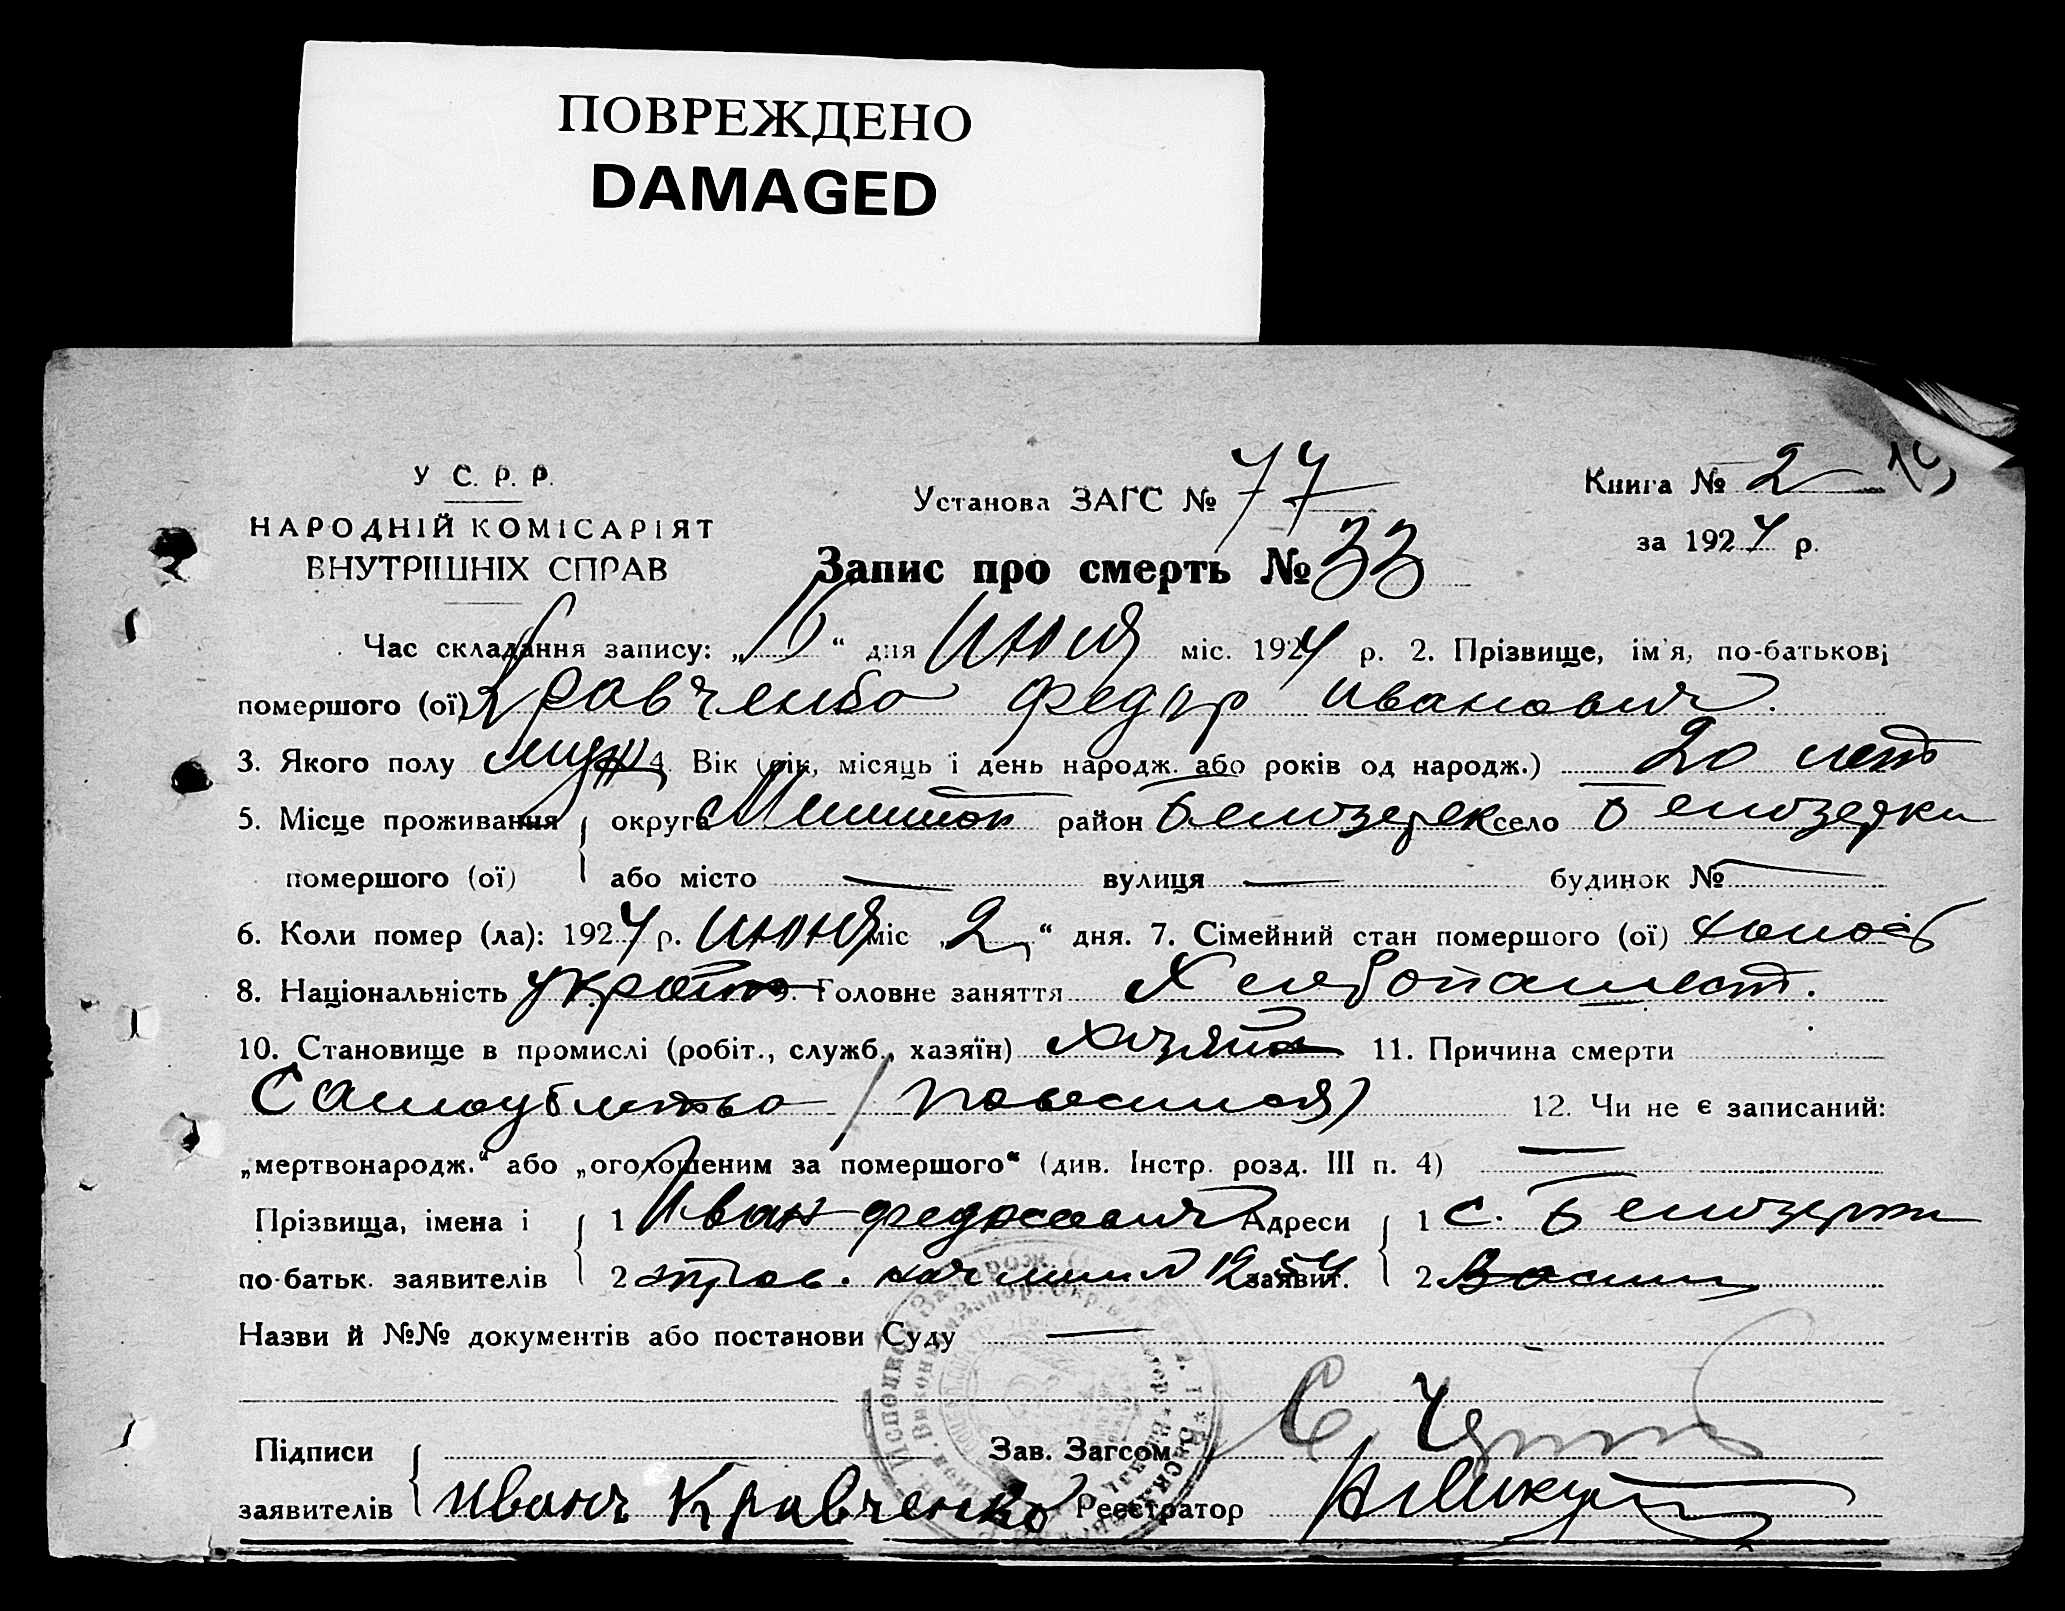 ПОВРЕЖДЕНО
DAMAGED
У С. Р. Р.
НАРОДНІЙ КОМІСАРІЯТ
ВНУТРІШНІХ СПРАВ
Установа ЗАГС № 77
Книга № 2
за 1924 р.
Запис про смерть № 33
Час складання запису: „ “ дня июня міс. 1924 р. 2. Прізвище, ім'я, по-батькові
помершого (ої) Кравченко Федор Иванович.
3. Якого полу муж 4. Вік (рік, місяць і день народж. або років од народж.) 20 лет
5. Місце проживання округа район Белозерск село Белозерки
помершого (ої) або місто — вулиця — будинок № —
6. Коли помер (ла): 1924 р. июня міс „2“ дня. 7. Сімейний стан помершого (ої) холост
8. Національність 9. Головне заняття Хлебопашест.
10. Становище в промислі (робіт., служб., хазяїн) хозяин 11. Причина смерти
Самоубийство (повесился) 12. Чи не є записаний:
„мертвонародж.“ або „оголошеним за помершого“ (див. Інстр. розд. III п. 4) —
Прізвища, імена і 1 Иван Адреси 1 с.
по-батьк. заявителів 2 заявит. 2
Назви й №№ документів або постанови Суду —
Підписи Зав. Загсом
заявителів Иван Кравченко Реєстратор